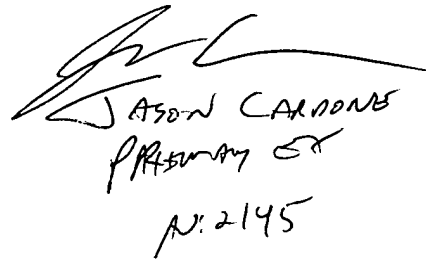 JASON CARDONE
PARKWAY EX
N: 2145